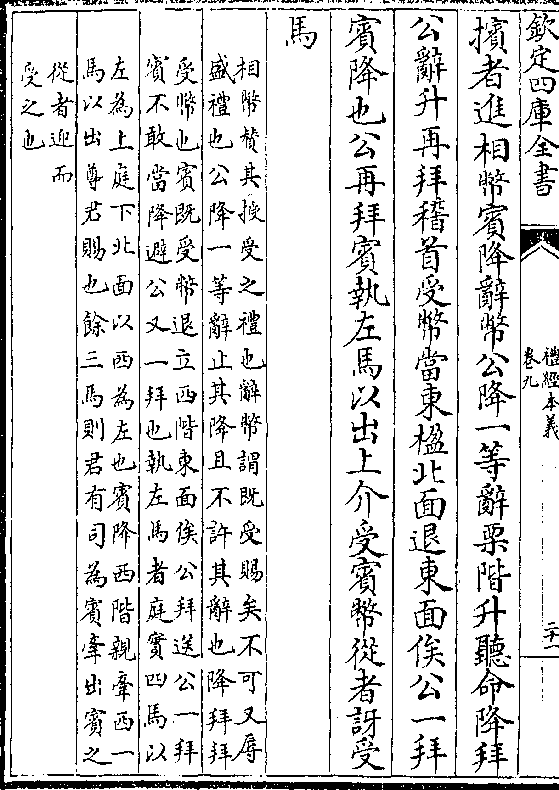 欽定四庫全書
禮經本義
卷九
二十一
擯者進相幣賓降辭幣公降一等辭栗階升聽命降拜
公辭升再拜稽首受幣當東楹北面退東面俟公一拜
賓降也公再拜賓執左馬以出上介受賓幣從者訝受
馬
相幣贊其授受之禮也辭幣謂既受賜矣不可又辱
盛禮也公降一等辭止其降且不許其辭也降拜拜
受幣也賓既受幣退立西階東面俟公拜送公一拜
賓不敢當降避公又一拜也執左馬者庭實四馬以
左為上庭下北面以西為左也賓降西階親牽西一
馬以出尊君賜也餘三馬則君有司為賓牽出賓之
從者迎而
受之也